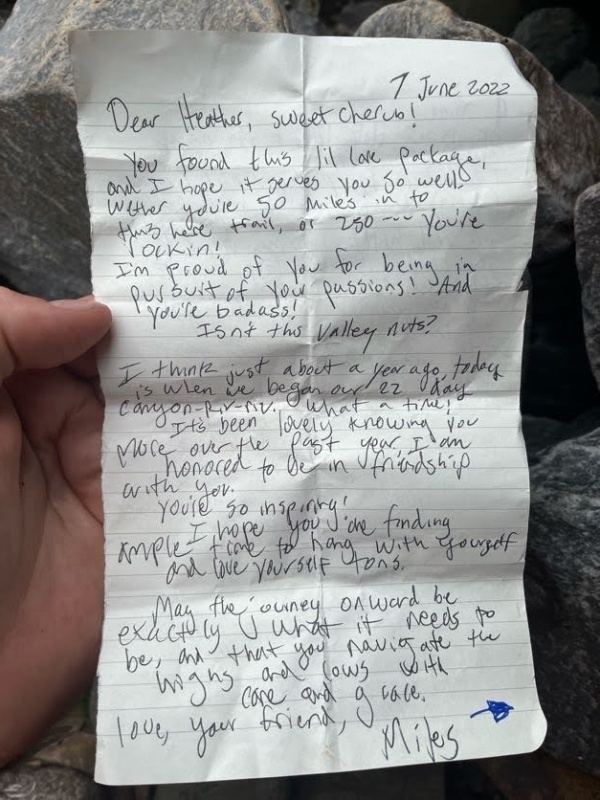 7 June 2022
Dear Heather, sweet cherub!
You found this lil love package,
and I hope it serves you so well.
Wether you're 50 miles in to
this here trail, or 250 --- you're
rockin!
I'm proud of you for being in
pursuit of your passions! And
you're badass!
Isn't this valley nuts?
I think just about a year ago, today
is when we began our 22 day
canyon-riv-riv. What a time!
It's been lovely knowing you
more over the past year, I am
honored to be in friendship
with you.
You're so inspiring!
I hope you're finding
ample time to hang with yourself
and love yourself tons.
May the journey onward be
exactly what it needs to
be, and that you navigate the
highs and lows with
care and grace.
love, your friend,
Miles